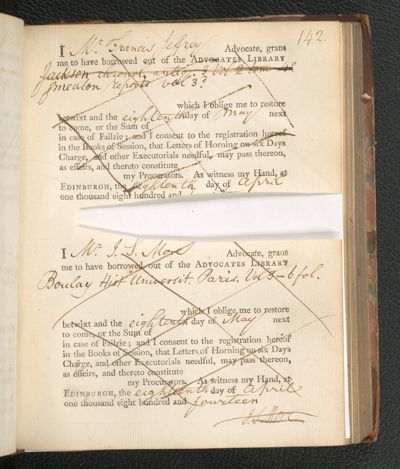 142.
I Mr. Francis Jefrey Advocate, grant
me to have borrowed out of the ADVOCATES LIBRARY
Jackson chronol. antiq. 3 Vol 2 tom 4o
Smeaton reports vol 3d
which I oblige me to restore
betwixt and the eighteenth day of May next
to come, or the Sum of
in case of Failzie; and I consent to the registration hereof
in the Books of Session, that Letters of Horning on six Days
Charge, and other Executorials needful, may pass thereon,
as effeirs, and thereto constitute
my Procurators. As witness my Hand, at
EDINBURGH, the eighteenth day of April
one thousand eight hundred and
I Mr. J. S. More Advocate, grant
me to have borrowed out of the ADVOCATES LIBRARY
Boulay Hist Universit. Paris. Vol 3-6 fol.
which I oblige me to restore
betwixt and the eighteenth day of May next
to come, or the Sum of
in case of Failzie; and I consent to the registration hereof
in the Books of Session, that Letters of Horning on six Days
Charge, and other Executorials needful, may pass thereon,
as effeirs, and thereto constitute
my Procurators. As witness my Hand, at
EDINBURGH, the eighteenth day of April
one thousand eight hundred and fourteen
J. S. More